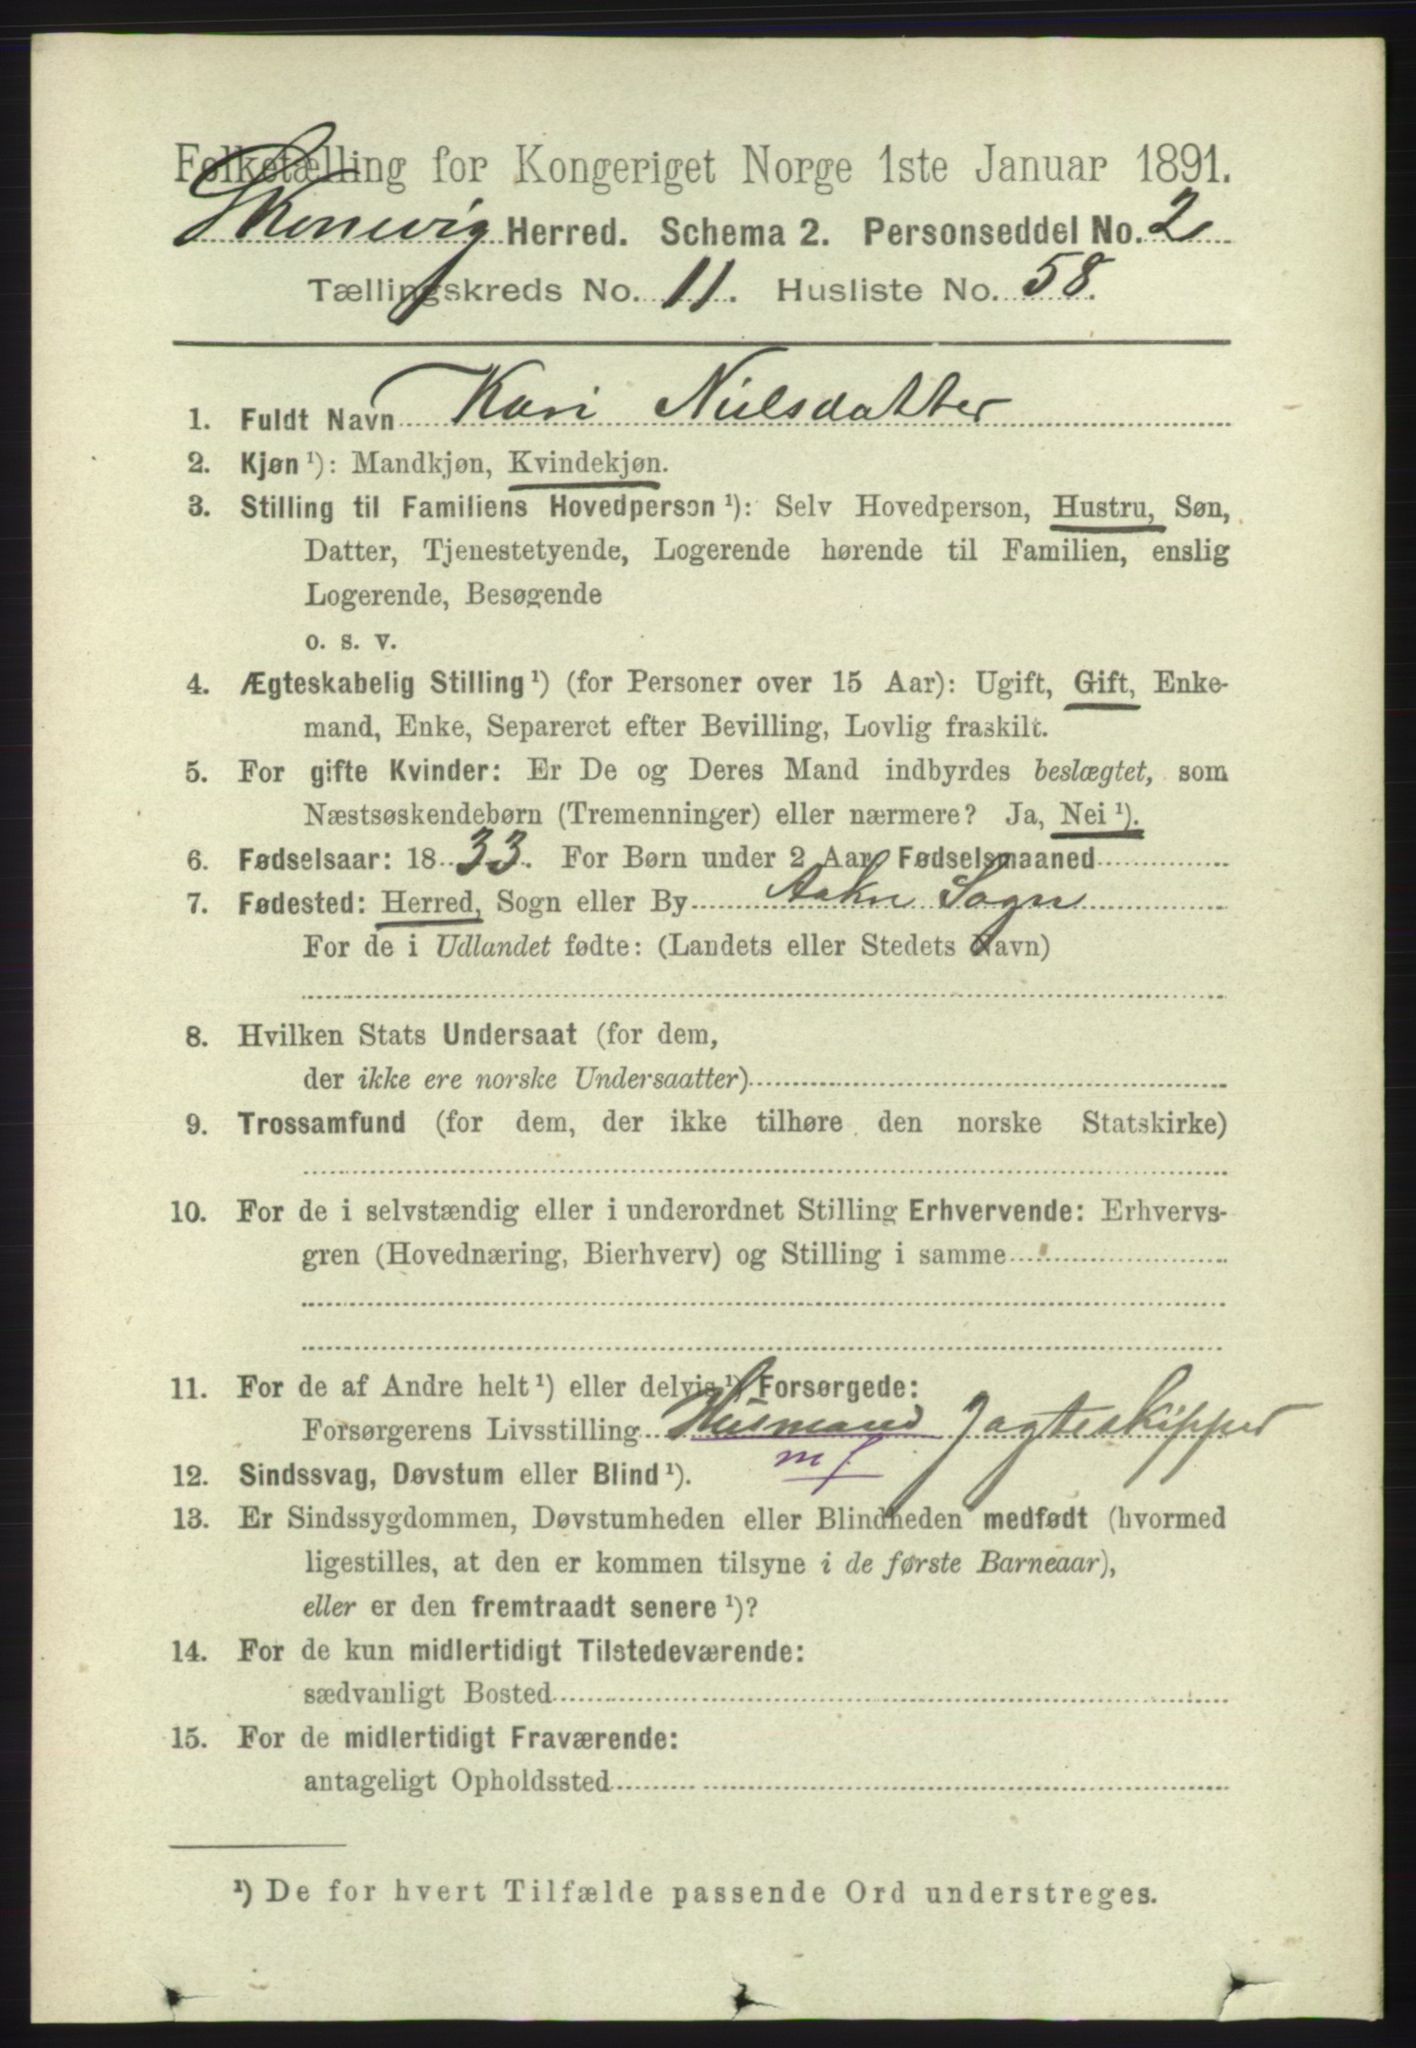 Folketælling for Kongeriget Norge 1ste Januar 1891.
Skonevig Herred. Schema 2. Personseddel No. 2
Tællingskreds No. 11. Husliste No. 58.
1. Fuldt Navn Kari Nielsdatter
2. Kjøn ¹): Mandkjøn, Kvindekjøn.
3. Stilling til Familiens Hovedperson ¹): Selv Hovedperson, Hustru, Søn,
Datter, Tjenestetyende, Logerende hørende til Familien, enslig
Logerende, Besøgende
o. s. v.
4. Ægteskabelig Stilling ¹) (for Personer over 15 Aar): Ugift, Gift, Enke-
mand, Enke, Separeret efter Bevilling, Lovlig fraskilt.
5. For gifte Kvinder: Er De og Deres Mand indbyrdes beslægtet, som
Næstsøskendebørn (Tremenninger) eller nærmere? Ja, Nei ¹).
6. Fødselsaar: 1833. For Børn under 2 Aar, Fødselsmaaned
7. Fødested: Herred, Sogn eller By Aakre Sogn
For de i Udlandet fødte: (Landets eller Stedets Navn)
8. Hvilken Stats Undersaat (for dem,
der ikke ere norske Undersaatter)
9. Trossamfund (for dem, der ikke tilhøre den norske Statskirke)
10. For de i selvstændig eller i underordnet Stilling Erhvervende: Erhvervs-
gren (Hovednæring, Bierhverv) og Stilling i samme
11. For de af Andre helt ¹) eller delvis ¹) Forsørgede:
Forsørgerens Livsstilling Husmand Jagteskipper
12. Sindssvag, Døvstum eller Blind ¹).
13. Er Sindssygdommen, Døvstumheden eller Blindheden medfødt (hvormed
ligestilles, at den er kommen tilsyne i de første Barneaar),
eller er den fremtraadt senere ¹)?
14. For de kun midlertidigt Tilstedeværende:
sædvanligt Bosted
15. For de midlertidigt Fraværende:
antageligt Opholdssted
¹) De for hvert Tilfælde passende Ord understreges.